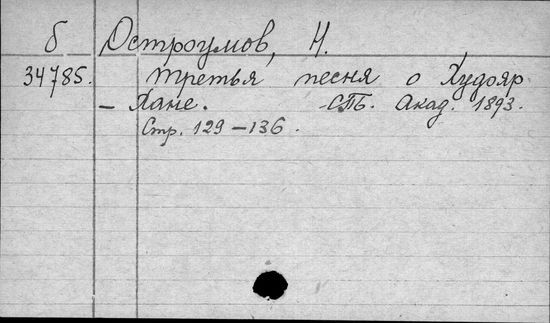 б Остроумов, Н.
34785. Третья песня о Худояр
- Хане. - СПБ. Акад. 1893.
Стр. 129-136.